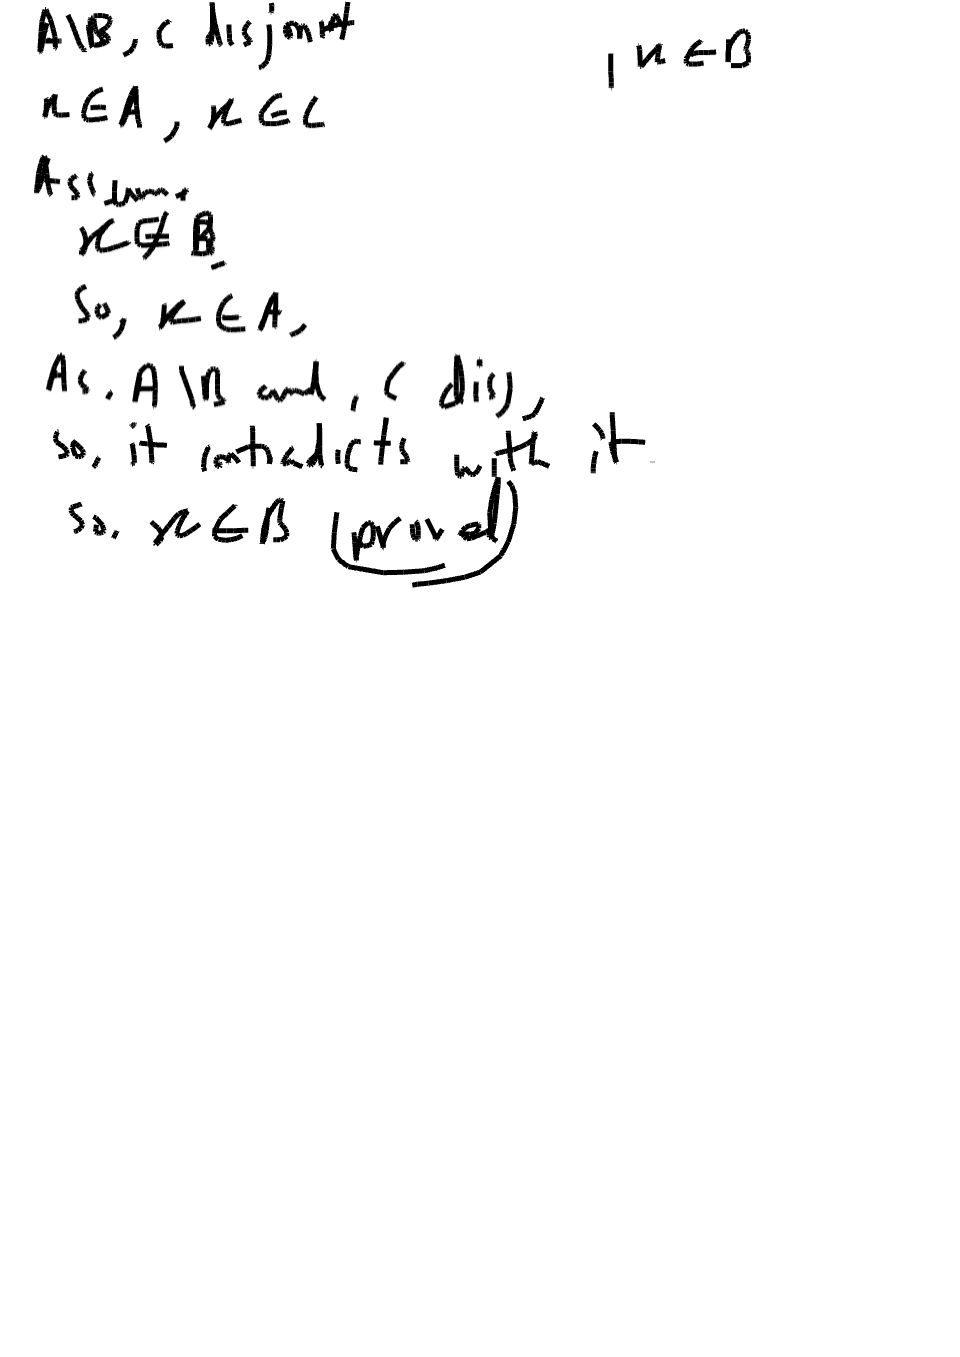 A\B, C disjoint
, x ∈ B
x ∈ A, x ∈ C
Assume
x ∉ B
So, x ∈ A,
As. A\B and, C disj,
so, it contradicts with it
so. x ∈ B (proved)